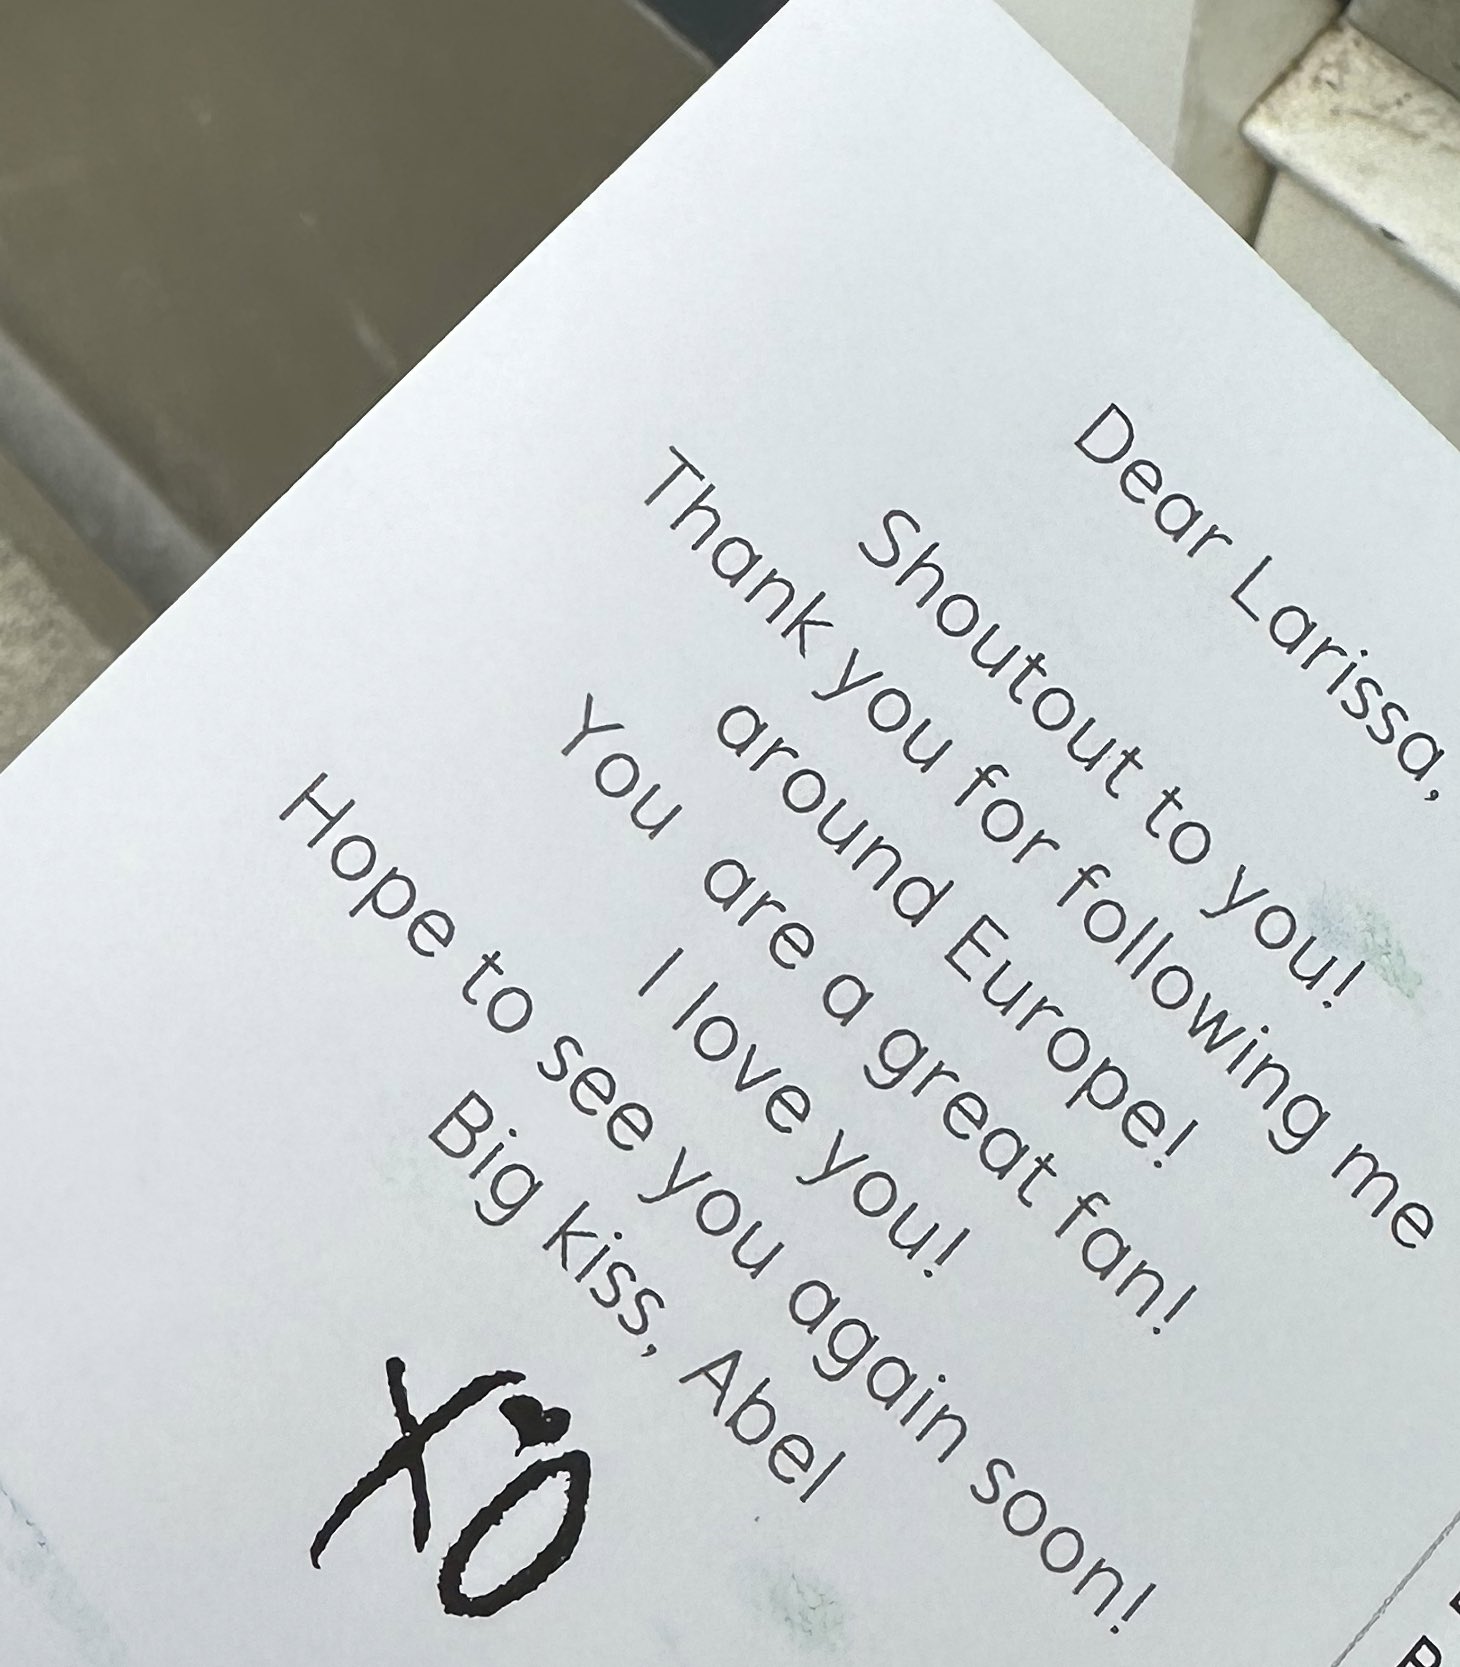 Dear Larissa,
Shoutout to you!
Thank you for following me
around Europe!
You are a great fan!
I love you!
Hope to see you again soon!
Big kiss, Abel
XO